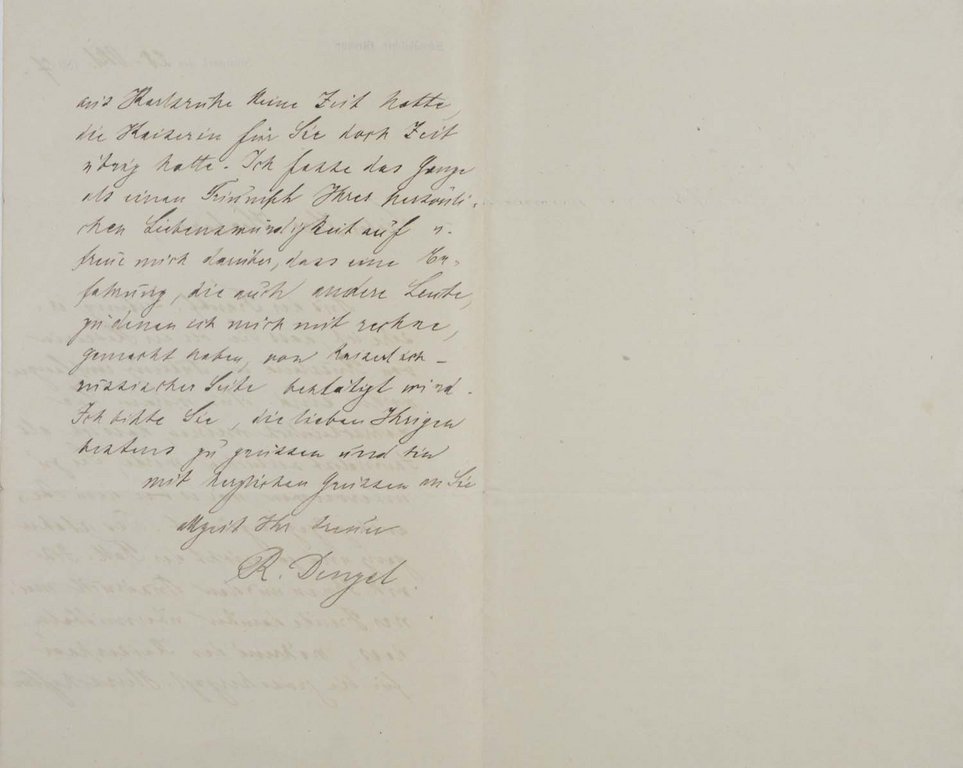 aus Karlsruhe keine Zeit hatte,
die Kaiserin für Sie doch Zeit
übrig hatte. Ich fasse das Ganze
als einen Triumph Ihrer persönli-
chen Liebenswürdigkeit auf u.
freue mich darüber, dass eine Er-
fahrung, die auch andere Leute,
zu denen ich mich mit rechne,
gemacht haben, von kaiserlich-
russischer Seite bestätigt wird.
Ich bitte Sie, die lieben Ihrigen
bestens zu grüssen und bin
mit herzlichen Grüssen an Sie
Ihr
R. Dingel.